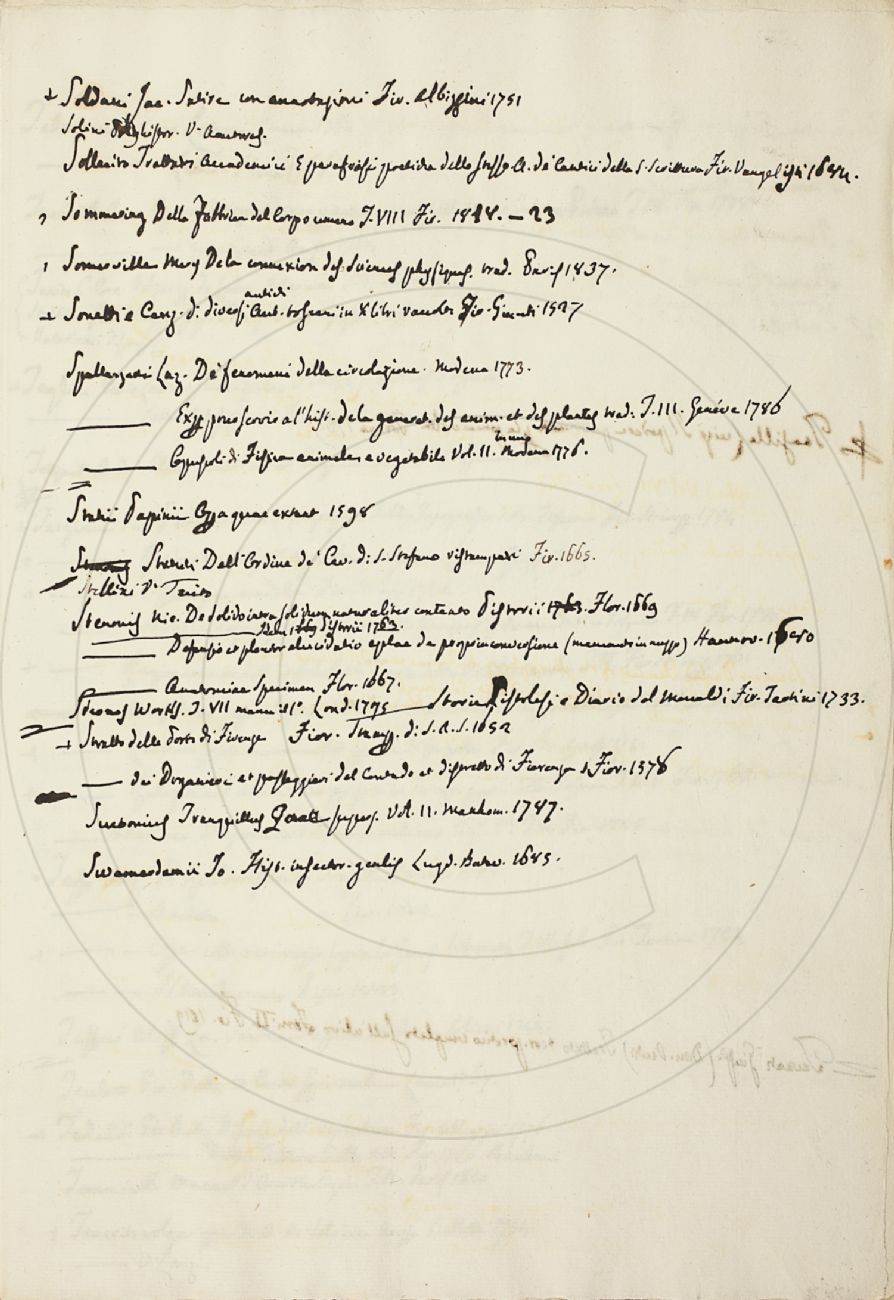 + Soldani Jac. Satire con annotazioni Fir. Albizzini 1751
Solini Polyhistor. V.
Trattati Accademici E parafrasi poetica dello stesso A. de' Cantici della S. Scrittura Fir. Vangelisti 1644.
Sommering Della Fabbrica del Corpo umano T. VIII Fir. 1818. – 23
Somerville Mary De la connexion des sciences physiques. trad. Paris 1837.
+ Sonetti e Canz. di diversi antichi Aut. toscani in X libri raccolti Fir. Giunti 1527
Spallanzani Laz. De' fenomeni della circolazione. Modena 1773.
Exp. pour servir a l'hist. de la generat. des anim. et des plantes trad. T. III. Genéve 1786
Opuscoli di Fisica animale e vegetabile Vol. II. Modena 1776.
Statii Papinii Opera quae extant 1598
Statuti Dell'Ordine de' Cav. di S. Stefano ristampati Fir. 1665.
Stellini V.
Stenonis Nic. De solido intra solidum naturaliter contento Pistorii 1763. Flor. 1669
Idem 1669 Pistorii 1763.
Defensio et plenior elucidatio epistolae de propria conversione (mancante in mezzo) Hannov. 1680
Anatomiae Specimen Flor. 1667.
Sternes Works. T. VII manca il 1º. Lond. 1775 Storia Pistolesi e Diario del Monaldi Fir. Tartini 1733.
+ Stratto delle Porte di Firenze Fior. Stamp. di S. A. S. 1652
dei Doganieri et passeggieri del Contado et distretto di Fiorenza Fior. 1576
Suetonius Tranquillus Vol. II. Manhem. 1787.
Swamerdamii Jo. Hist. insector. genlis Lugd. Batav. 1685.